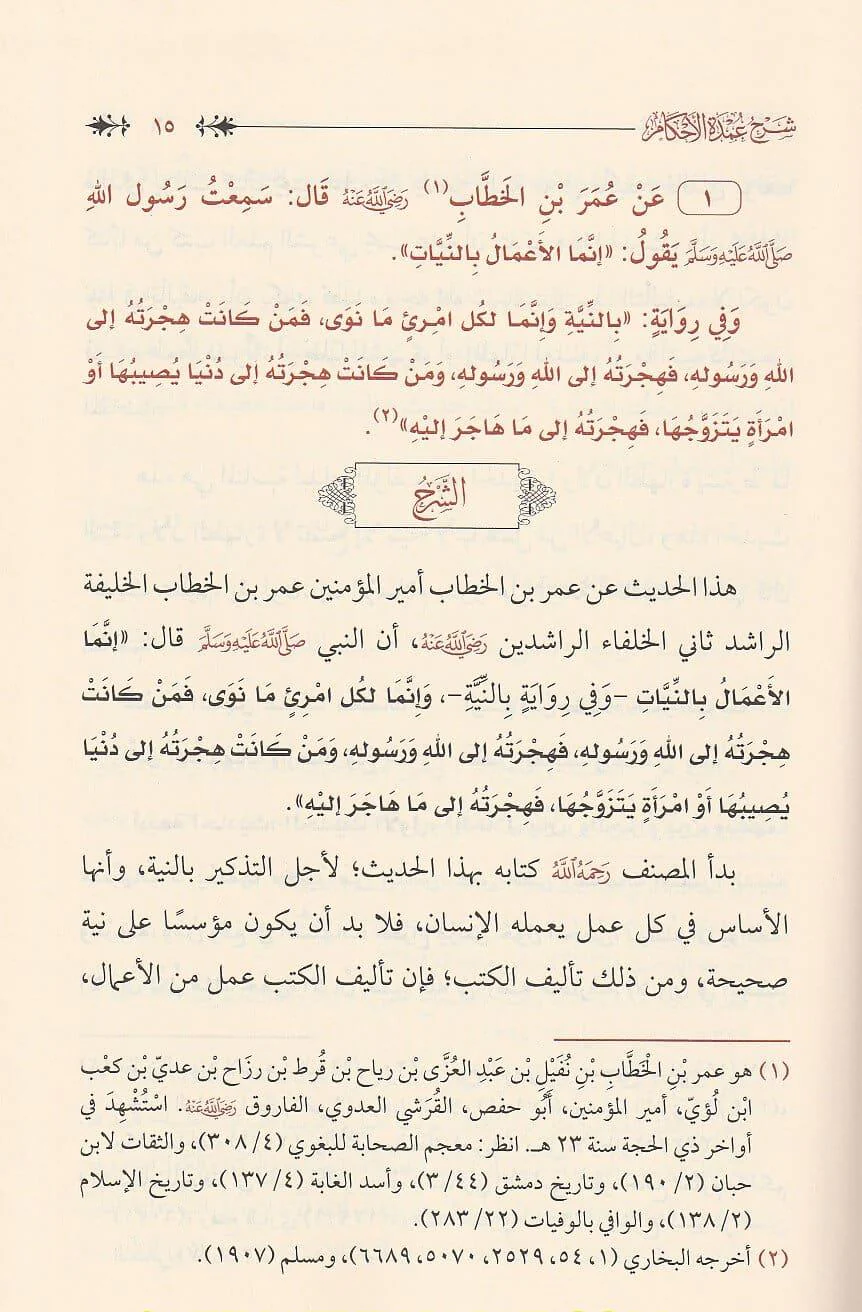 شَرْحُ عُمْدَةِ الأَحْكَامِ ١٥
١ عَنْ عُمَرَ بْنِ الخَطَّابِ(١) رَضِيَ اللَّهُ عَنْهُ قَال: سَمِعْتُ رَسُول اللهِ
صَلَّى اللَّهُ عَلَيْهِ وَسَلَّمَ يَقُولُ: «إنَّمَا الأَعْمَالُ بِالنِّيَّاتِ».
وَفِي رِوَايَةٍ: «بِالنِّيَّةِ وَإنَّمَا لكُل امْرِئٍ مَا نَوَى، فَمَنْ كَانَتْ هِجْرَتُهُ إلى
اللهِ وَرَسُولهِ، فَهِجْرَتُهُ إلى اللهِ وَرَسُولهِ، وَمَنْ كَانَتْ هِجْرَتُهُ إلى دُنْيَا يُصِيبُهَا أَوْ
امْرَأَةٍ يَتَزَوَّجُهَا، فَهِجْرَتُهُ إلى مَا هَاجَرَ إليْهِ»(٢).
الشَّرْحُ
هذا الحديث عن عمر بن الخطاب أمير المؤمنين عمر بن الخطاب الخليفة
الراشد ثاني الخلفاء الراشدين رَضِيَ اللَّهُ عَنْهُ، أن النبي صَلَّى اللَّهُ عَلَيْهِ وَسَلَّمَ قال: «إنَّمَا
الأَعْمَالُ بِالنِّيَّاتِ -وَفِي رِوَايَةٍ بِالنِّيَّةِ-، وَإنَّمَا لكُل امْرِئٍ مَا نَوَى، فَمَنْ كَانَتْ
هِجْرَتُهُ إلى اللهِ وَرَسُولهِ، فَهِجْرَتُهُ إلى اللهِ وَرَسُولهِ، وَمَنْ كَانَتْ هِجْرَتُهُ إلى دُنْيَا
يُصِيبُهَا أَوْ امْرَأَةٍ يَتَزَوَّجُهَا، فَهِجْرَتُهُ إلى مَا هَاجَرَ إليْهِ».
بدأ المصنف رَحِمَهُ اللَّهُ كتابه بهذا الحديث؛ لأجل التذكير بالنية، وأنها
الأساس في كل عمل يعمله الإنسان، فلا بد أن يكون مؤسسًا على نية
صحيحة، ومن ذلك تأليف الكتب؛ فإن تأليف الكتب عمل من الأعمال،
(١) هو عمر بْنِ الْخَطَّابِ بْنِ نُفَيْلِ بْنِ عَبْدِ العُزَّى بْنِ رياح بْنِ قُرط بْنِ رزَاح بْنِ عديّ بْنِ كَعْب
ابْن لُؤيّ، أمير المؤمنين، أَبُو حفص، القُرَشي العدوي، الفاروق رَضِيَ اللَّهُ عَنْهُ. اسْتُشْهِدَ في
أواخر ذي الحجة سنة ٢٣ هـ. انظر: معجم الصحابة للبغوي (٤/ ٣٠٨)، والثقات لابن
حبان (٢/ ١٩٠)، وتاريخ دمشق (٤٤/ ٣)، وأسد الغابة (٤/ ١٣٧)، وتاريخ الإسلام
(٢/ ١٣٨)، والوافي بالوفيات (٢٢/ ٢٨٣).
(٢) أخرجه البخاري (١، ٥٤، ٢٥٢٩، ٥٠٧٠، ٦٦٨٩)، ومسلم (١٩٠٧).